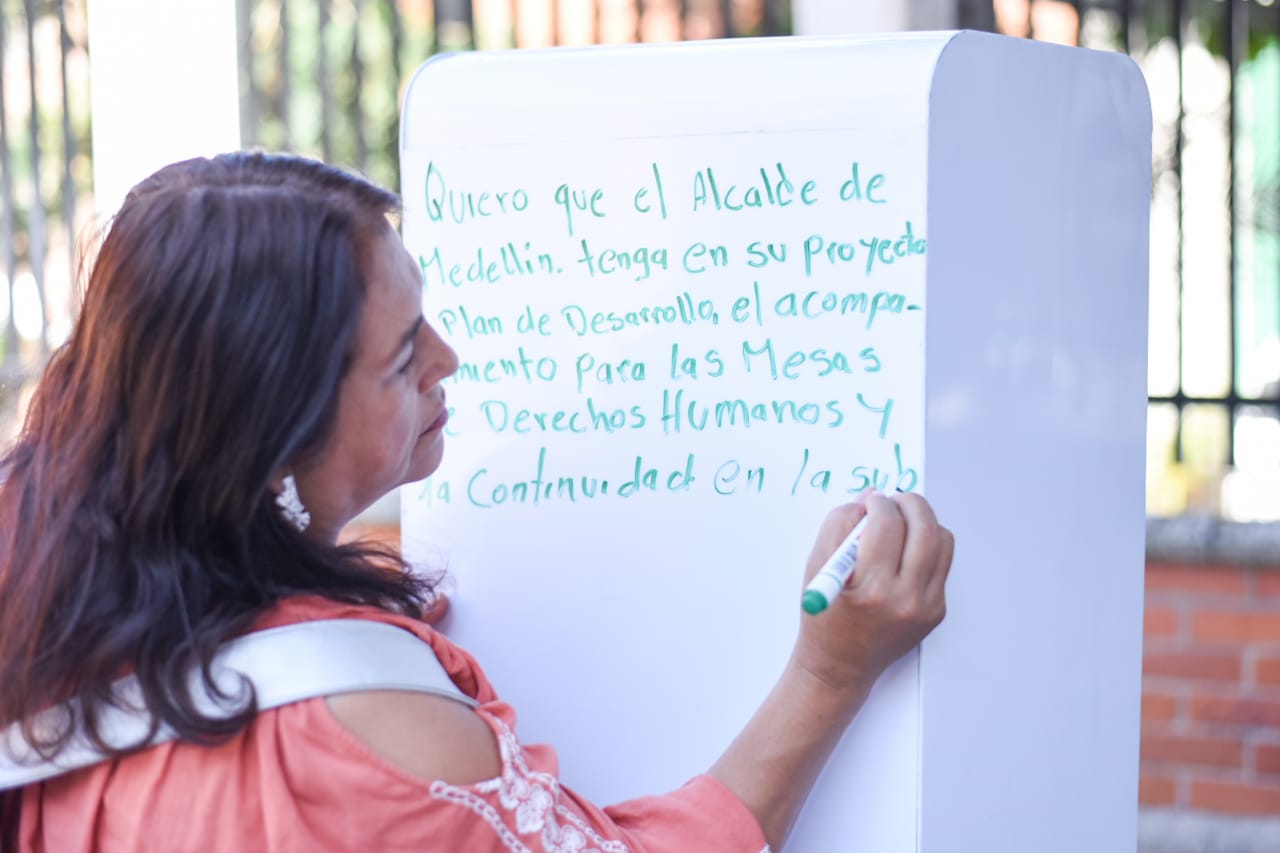 Quiero que el Alcalde de
Medellín. tenga en su proyecto
Plan de Desarrollo, el acompa-
miento para las Mesas
Derechos Humanos y
la Continuidad en la sub